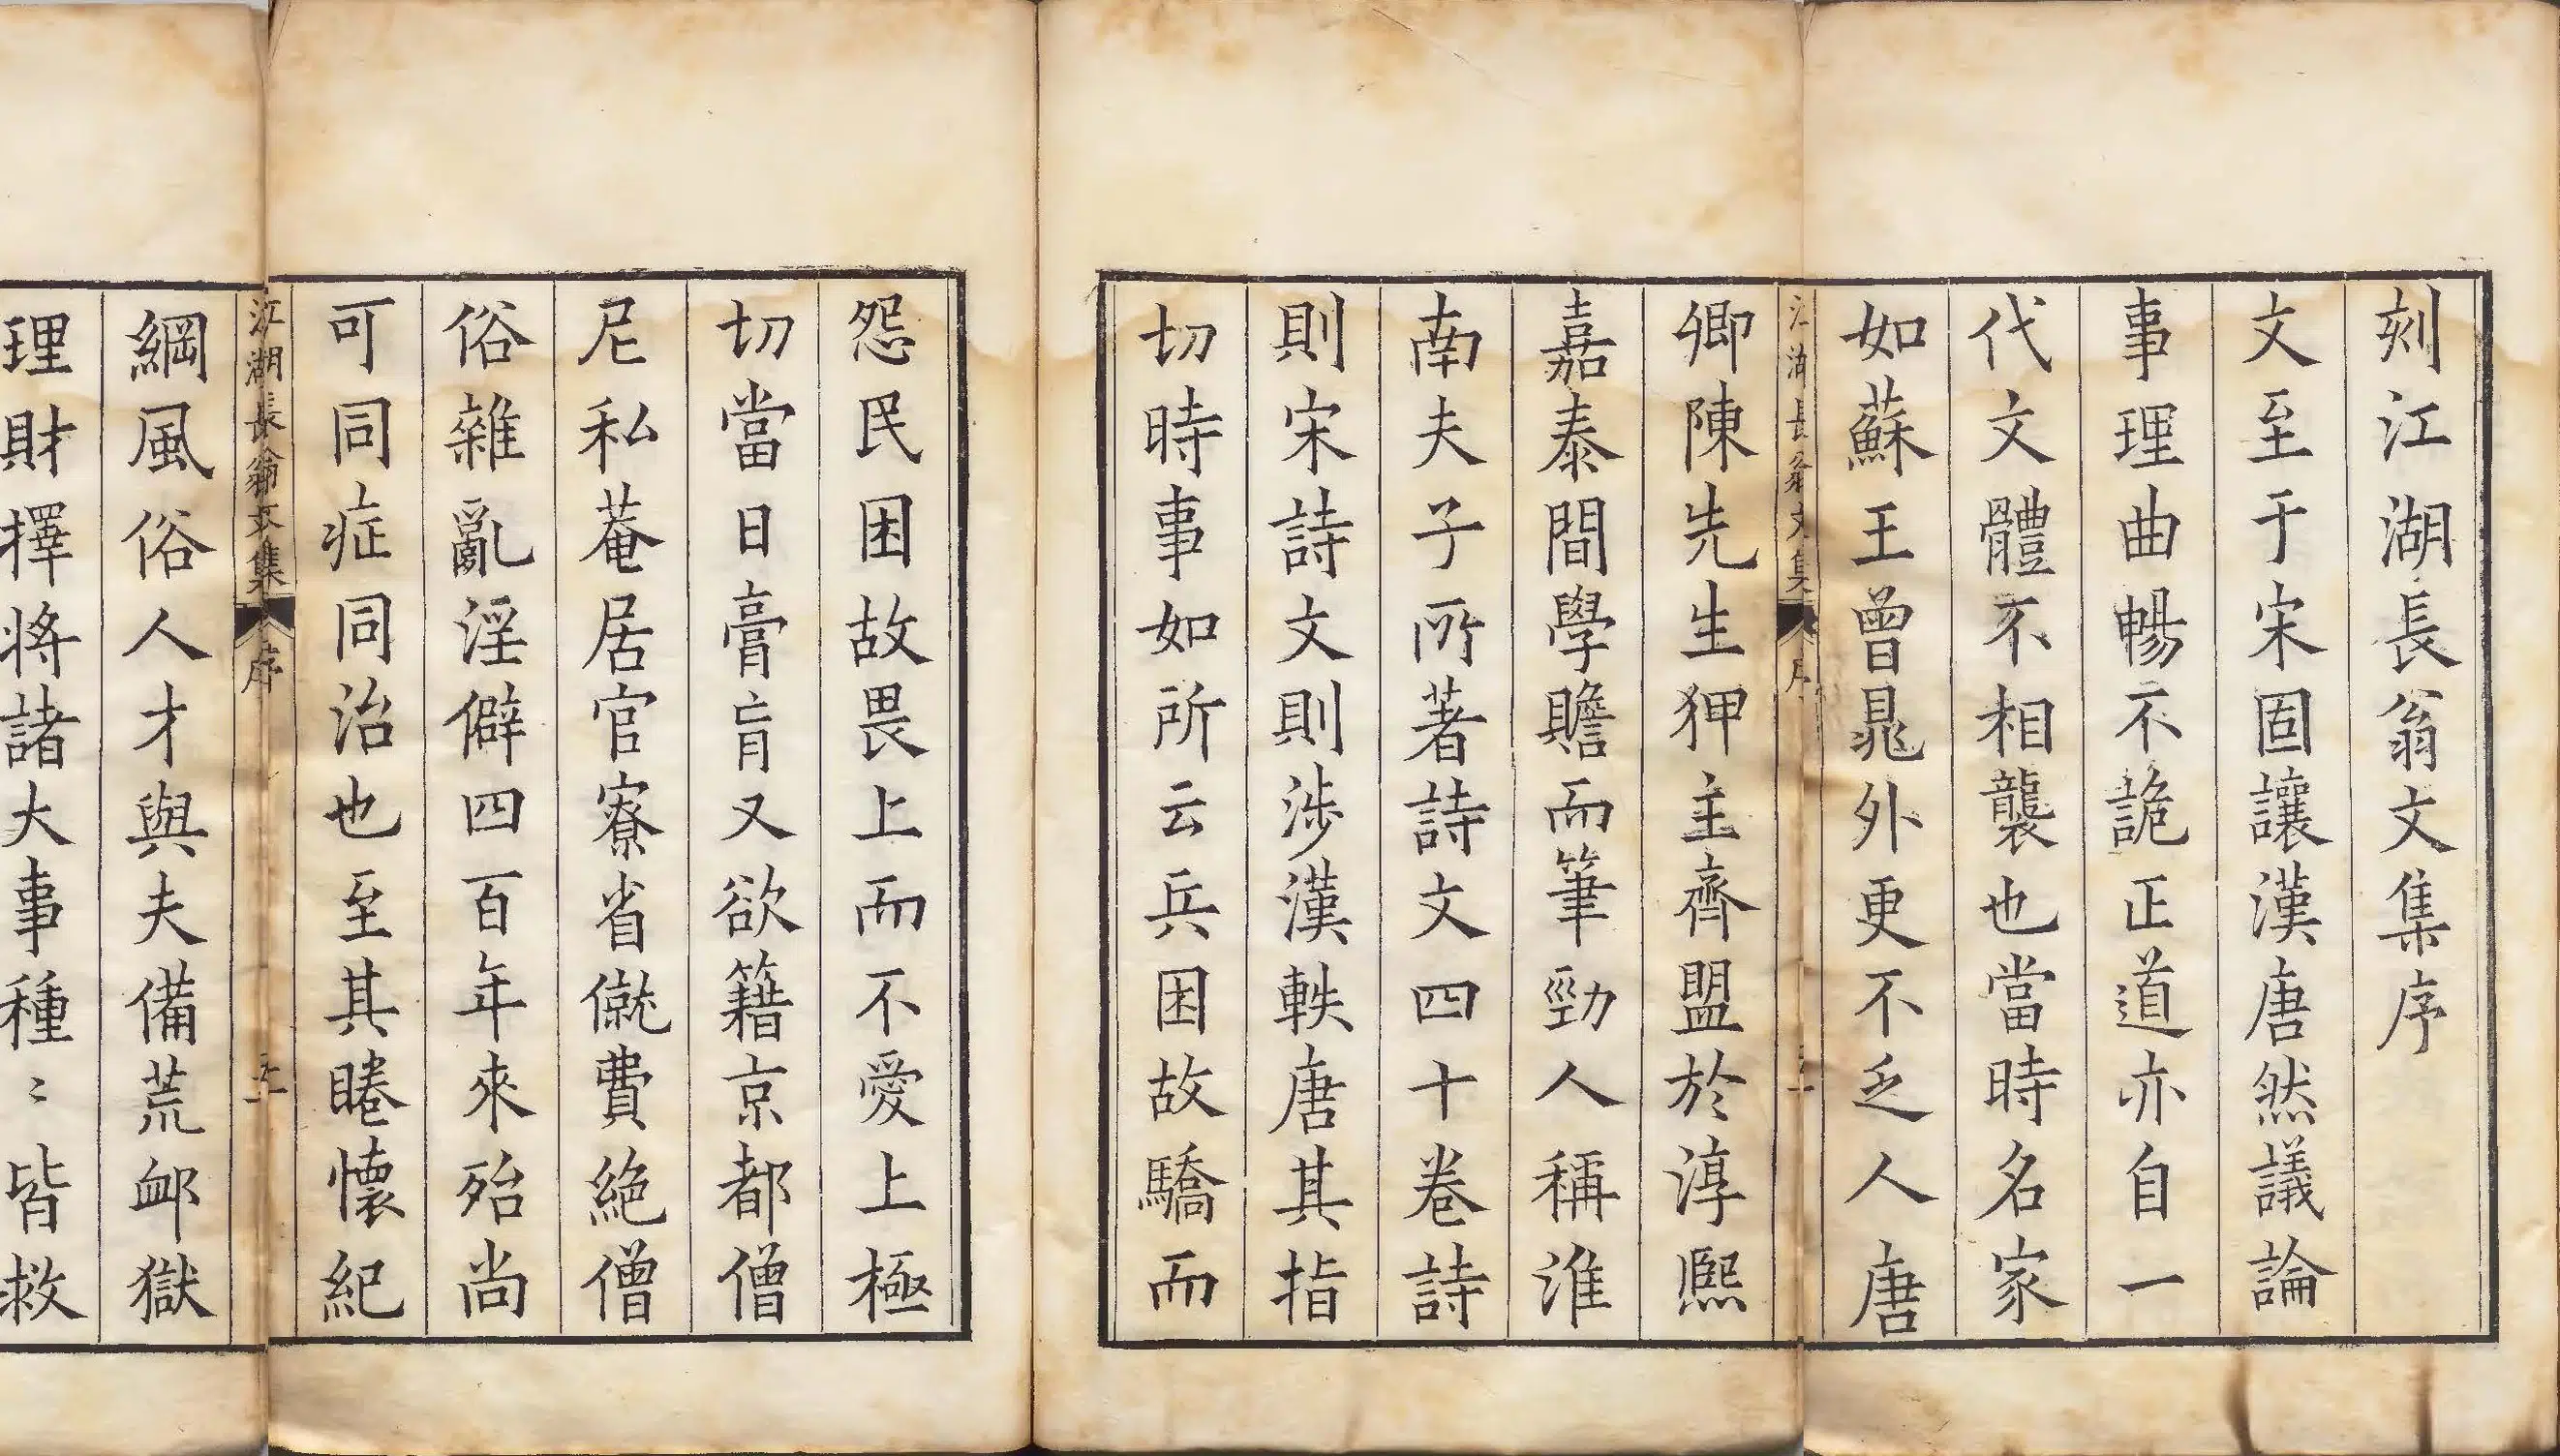 刻江湖長翁文集序
文至于宋固讓漢唐然議論
事理曲暢不詭正道亦自一
代文體不相襲也當時名家
如蘇王曾晁外更不乏人唐
江湖長翁文集 序
卿陳先生狎主齊盟於淳熙
嘉泰間學贍而筆勁人稱淮
南夫子所著詩文四十卷詩
則宋詩文則涉漢軼唐其指
切時事如所云兵困故驕而
怨民困故畏上而不愛上極
切當日膏肓又欲籍京都僧
尼私菴居官寮省僦費絕僧
俗雜亂淫僻四百年來殆尚
可同症同治也至其睠懷紀
江湖長翁文集 序
綱風俗人才與夫備荒䘏獄
理財擇將諸大事種〻皆救